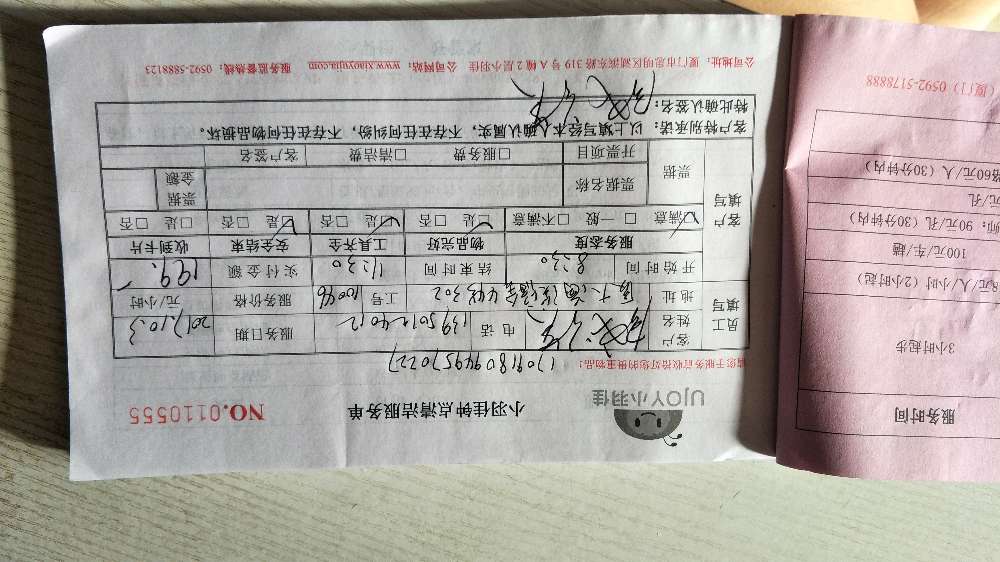 UJOY小羽佳
小羽佳钟点清洁服务单
NO.0110555
请您于服务前收拾好您的贵重物品！
1709180949570227
员工填写
客户姓名
电话 13950124012
服务日期 2017.10.3
地址
302
工号 10046
服务价格 元/小时
开始时间 8:30
结束时间 11:30
实付金额 199.
客户填写
服务态度 物品完好 工具齐全 安全结束 收到卡片
☑满意 □一般 □不满意 ☑是 □否 ☑是 □否 ☑是 □否 □是 □否
票据
票据名称
票据金额
开票项目 □服务费 □清洁费 客户签名
客户特别承诺：以上填写经本人确认属实，不存在任何纠纷，不存在任何物品损坏。
特此确认签名：
公司地址：厦门市思明区湖滨东路319号A幢2层小羽佳 公司网站：www.xiaoyujia.com 服务监督热线：0592-5888123
服务时间
3小时起步
8元/人/小时（2小时起）
100元/车/趟
师：90元/孔（30分钟内）
元/孔
格60元/人（30分钟内）
（厦门）0592-5178888